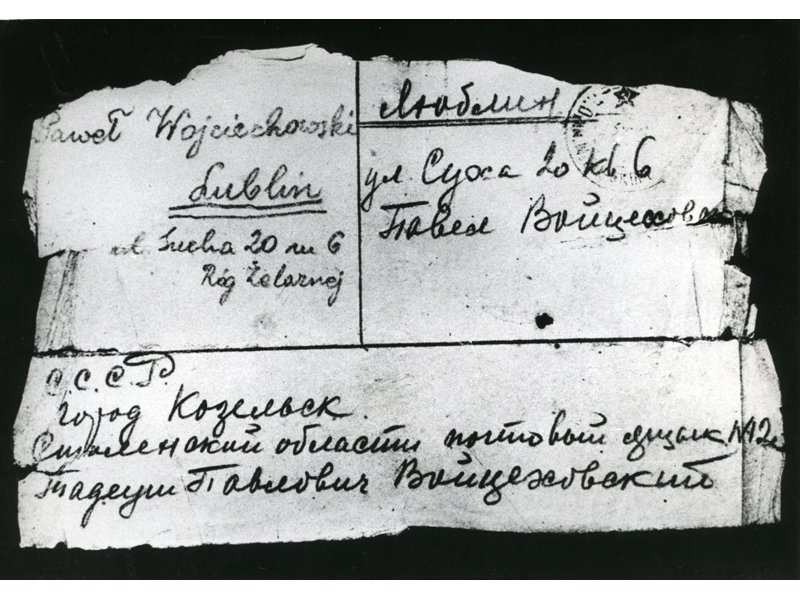 Paweł Wojciechowski
Lublin
ul. Sucha 20 m 6
Róg Żelaznej
Люблин
ул Суха 20 кв 6
Павел Войцеховск
С.С.С.Р.
город Козельск.
Смоленской области почтовый ящик №12
Тадеуш Павлович Войцеховский